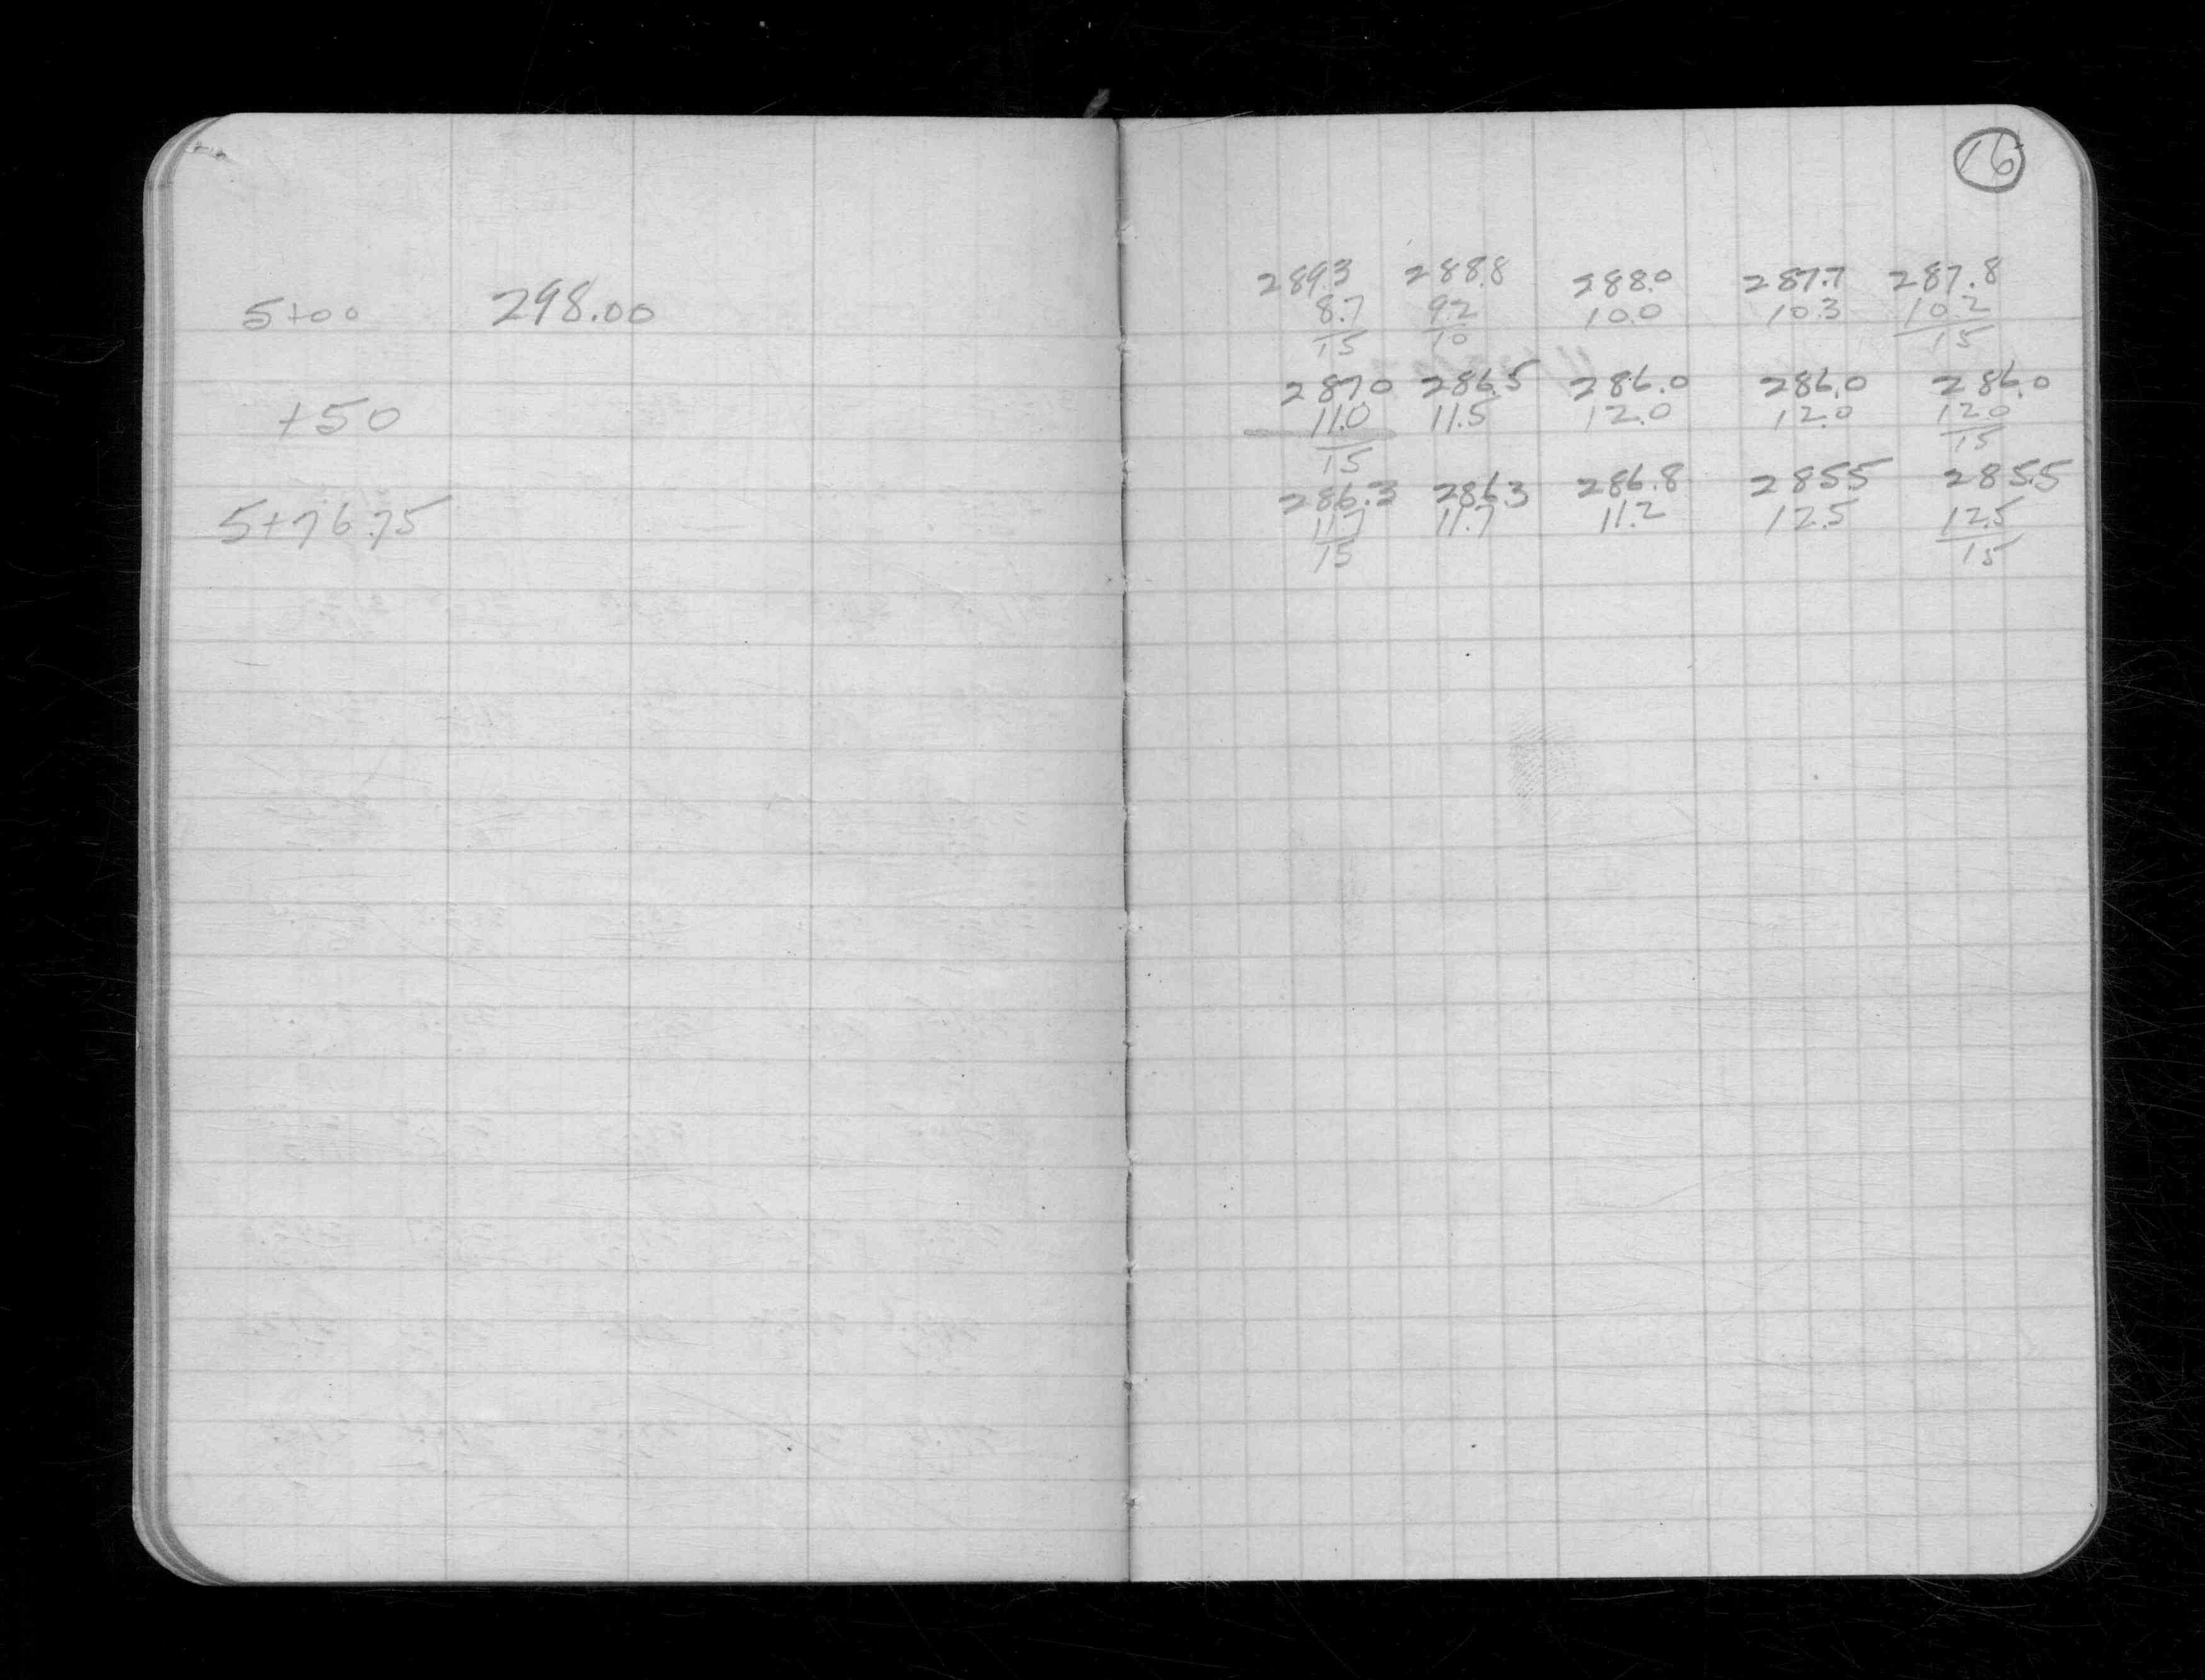 16
5+00 298.00
+50
5+76.75
289.3 288.8 288.0 287.7 287.8
8.7 9.2 10.0 10.3 10.2
15 10 15
287.0 286.5 286.0 286.0 286.0
11.0 11.5 12.0 12.0 12.0
15 15
286.3 286.3 286.8 285.5 285.5
11.7 11.7 11.2 12.5 12.5
15 15